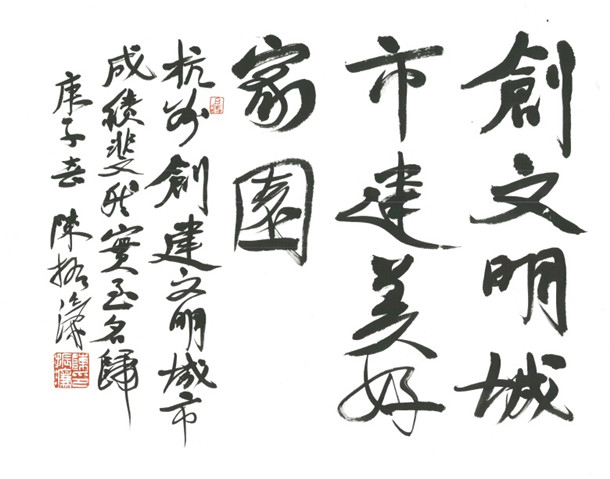 創文明城
市建美好
家園
杭州創建文明城市
成績斐然實至名歸
庚子春 陳振濂